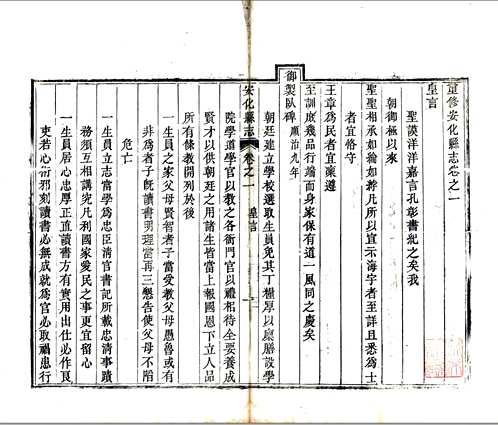 重修安化縣志卷之一
皇言
聖謨洋洋嘉言孔彰書紀之矣我
朝御極以來
聖聖相承如綸如綍凡所以宣示海宇者至詳且悉為士
者宜恪守
王章為民者宜稟遵
至訓庶幾品行端而身家保有道一風同之慶矣
御製臥碑 順治九年
朝廷建立學校選取生員免其丁糧厚以廩膳設學
安化縣志 卷之一 皇言 一
院學道學官以教之各衙門官以禮相待全要養成
賢才以供朝廷之用諸生皆當上報國恩下立人品
所有條教開列於後
一生員之家父母賢智者子當受教父母愚魯或有
非為者子既讀書明理當再三懇告使父母不陷
危亡
一生員立志當學為忠臣清官書記所載忠清事蹟
務須互相講究凡利國家愛民之事更宜留心
一生員居心忠厚正直讀書方有實用出仕必作良
吏若心術邪刻讀書必無成就為官必取禍患行